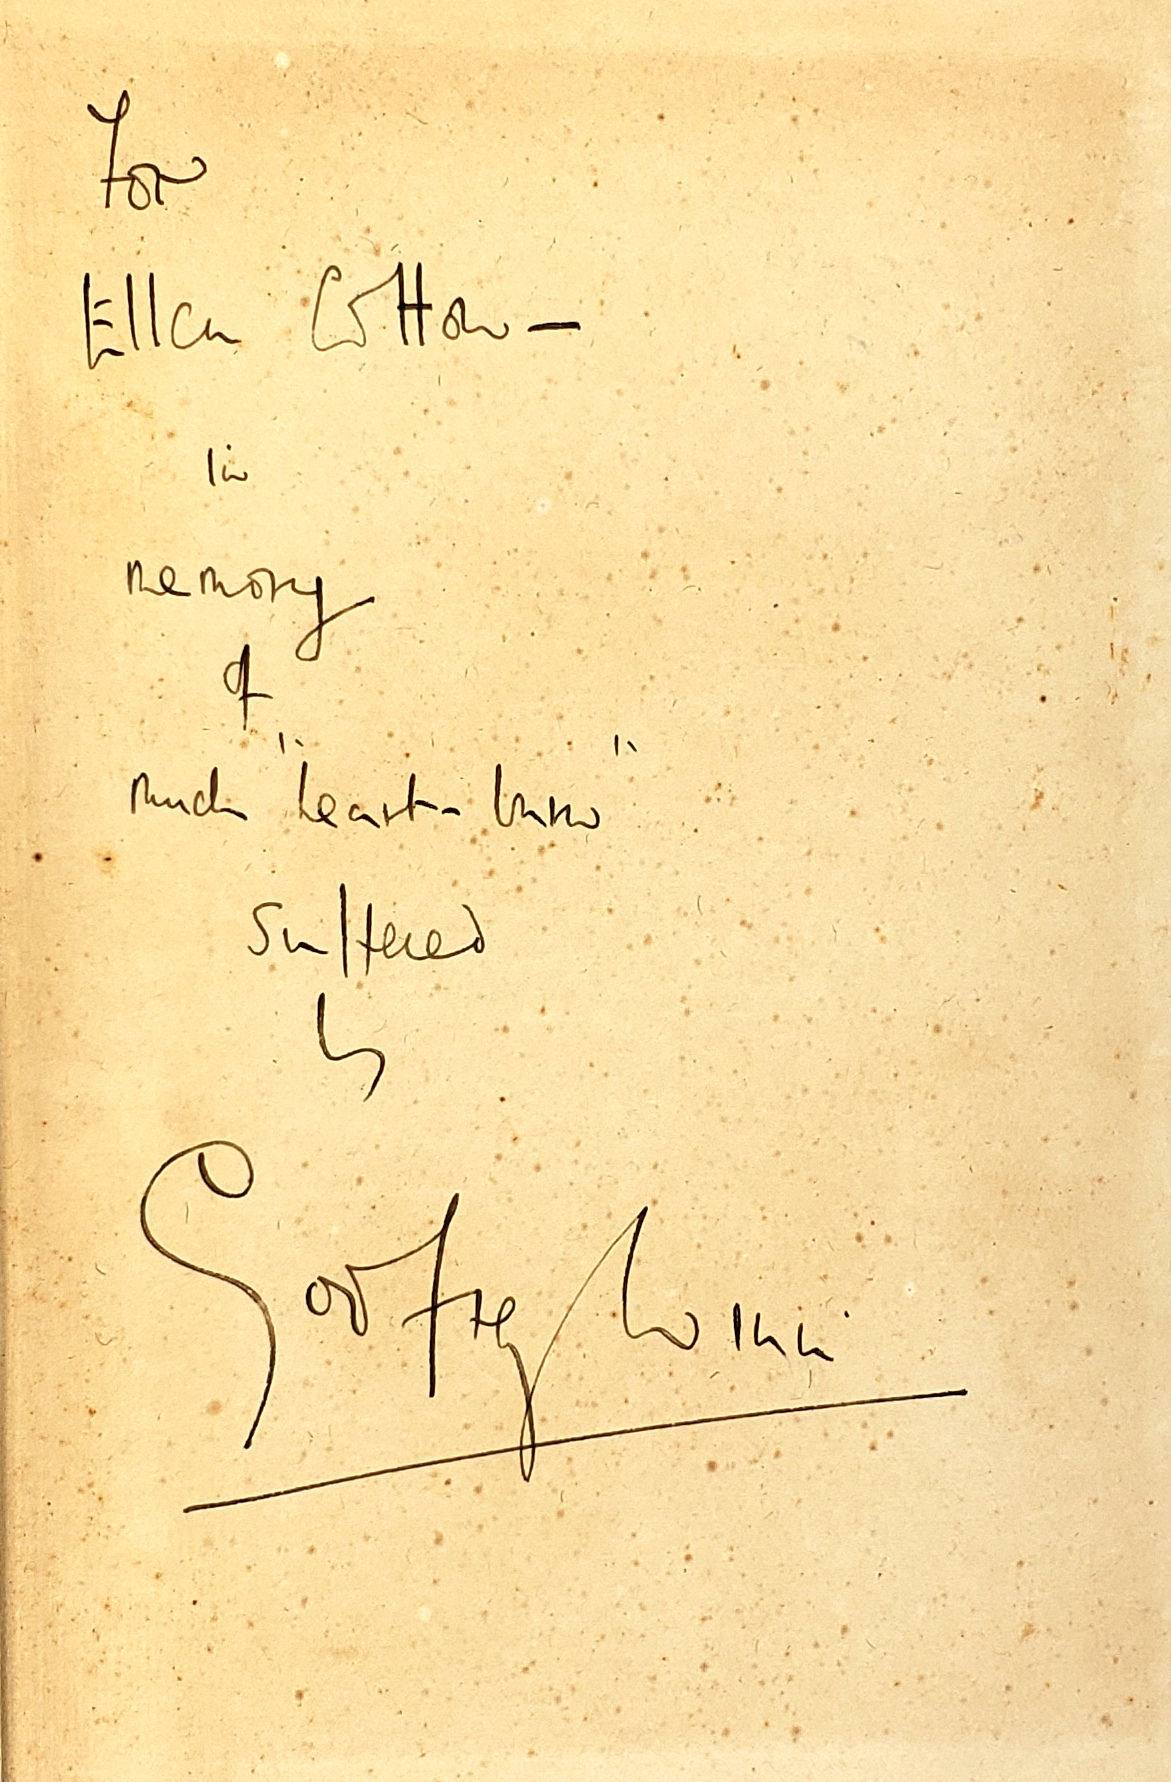 For
Ellen Cotton —
in
memory
of
much "heart-burn"
suffered
by
Godfrey Winn